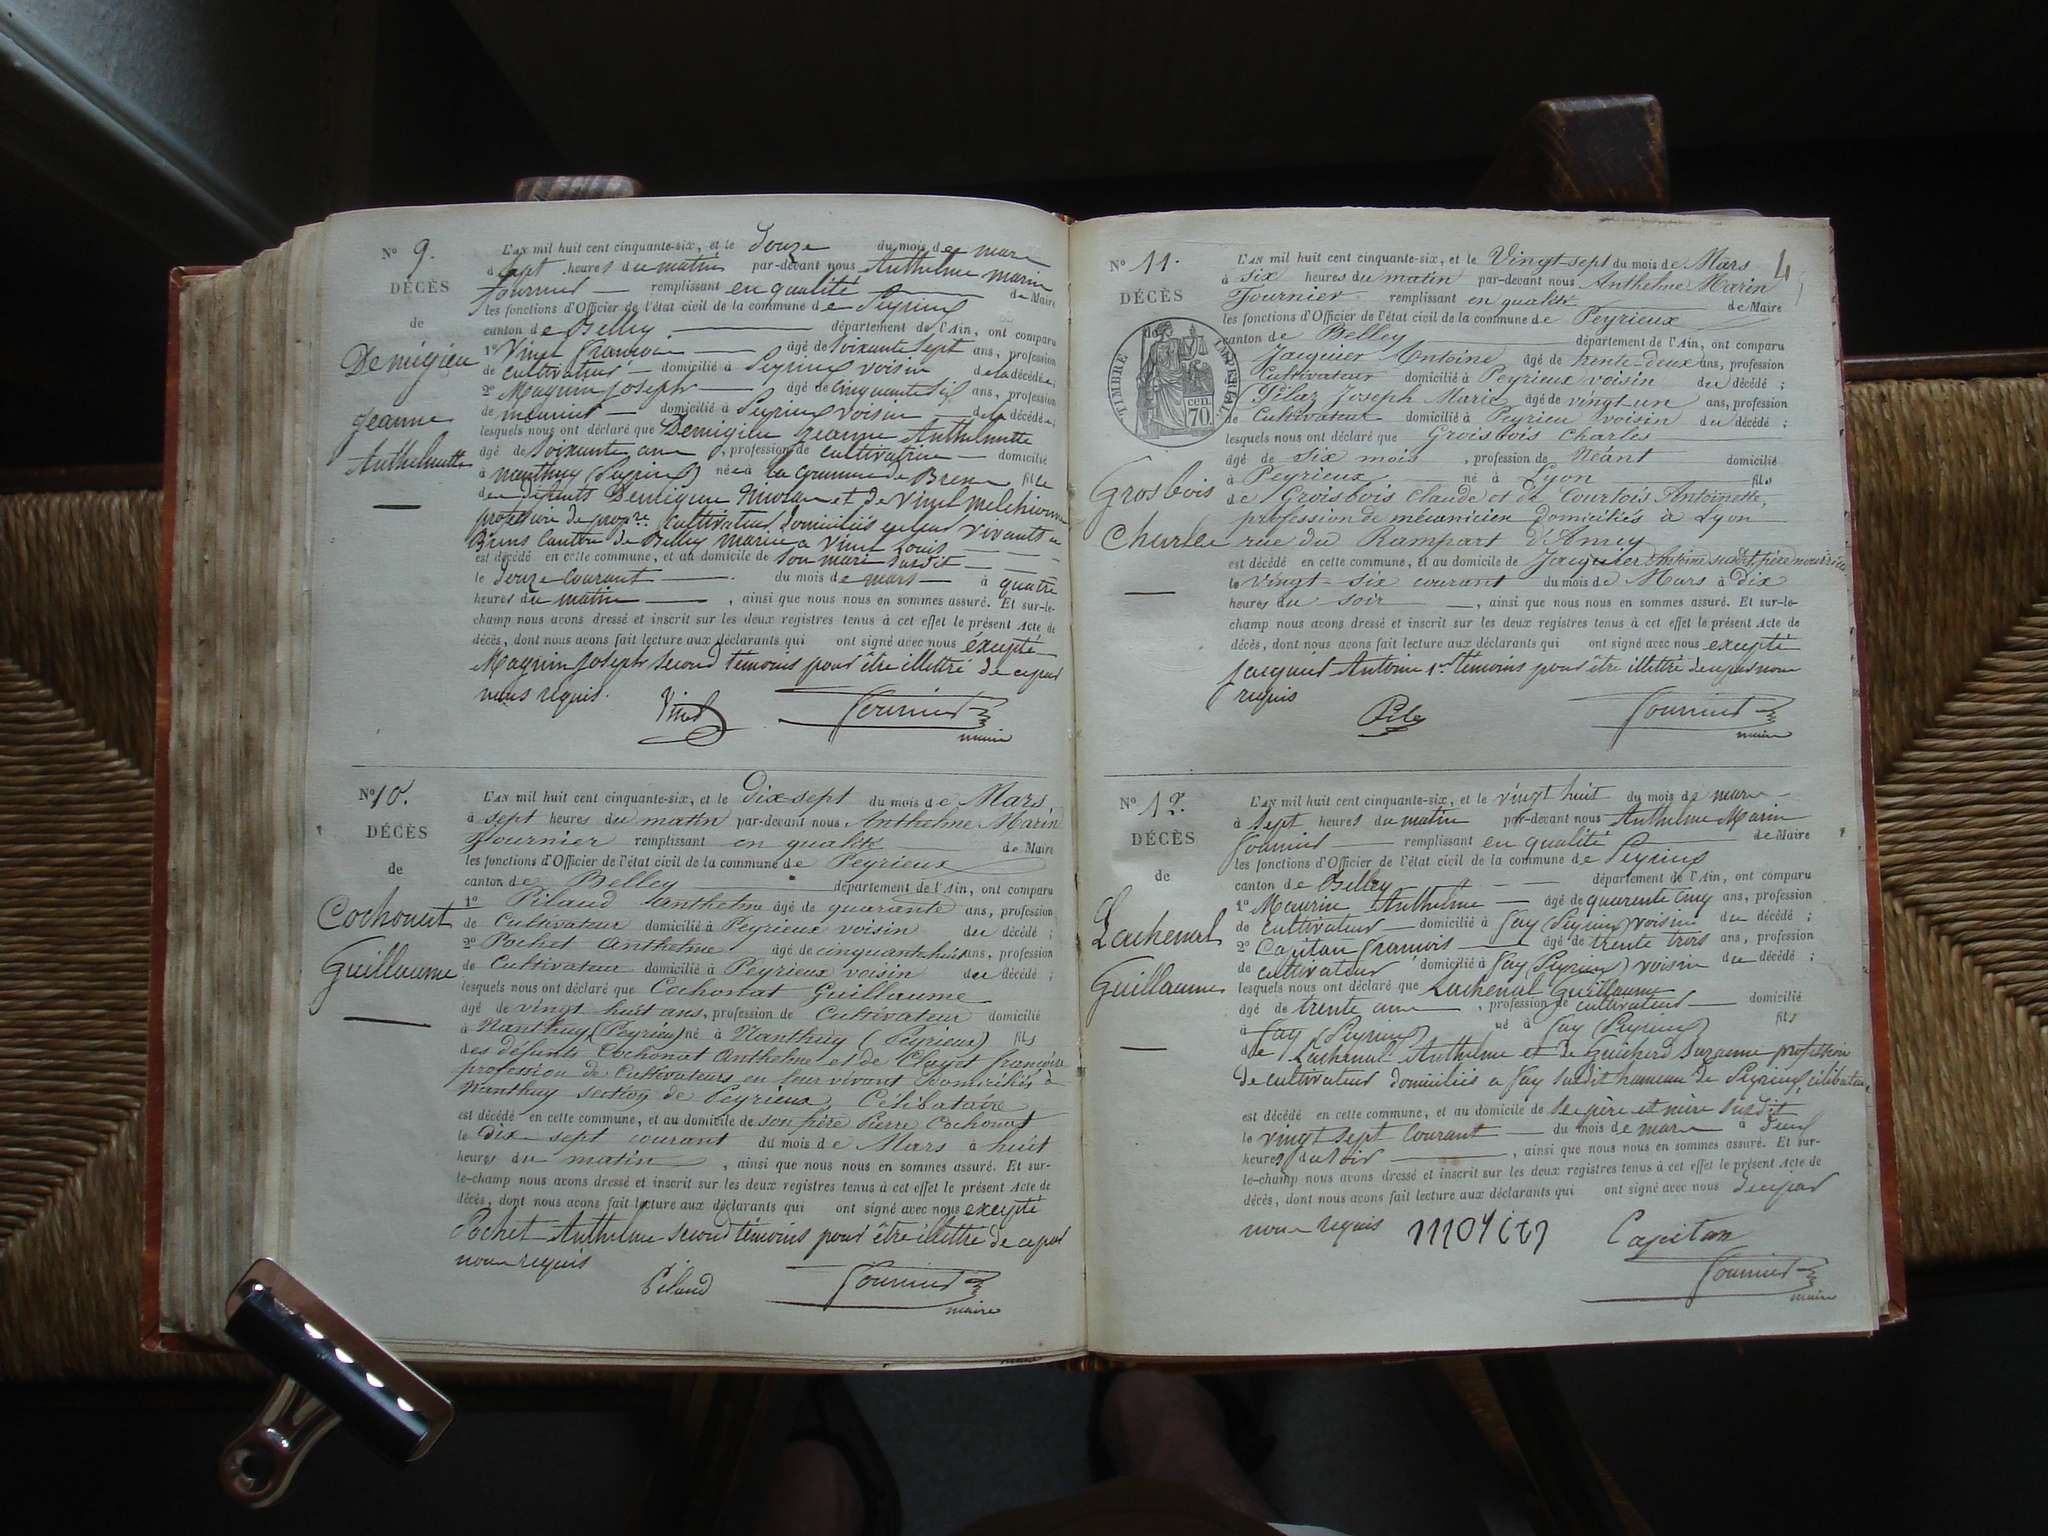 No 9.
DÉCÈS
de
Demigieu
Jeanne
Anthelmette
L'AN mil huit cent cinquante-six, et le Douze du mois de mars
à sept heures du matin par-devant nous Anthelme marin
fournier remplissant en qualité de Maire
les fonctions d'Officier de l'état civil de la commune de Peyrieux
canton de Belley département de l'Ain, ont comparu
1o Vinet françois âgé de soixante sept ans, profession
de cultivateur domicilié à Peyrieux voisin de la décédée;
2o Magnin Joseph âgé de cinquante six ans, profession
de domicilié à Peyrieux voisin de la décédée;
lesquels nous ont déclaré que Demigieu Jeanne Anthelmette
âgé de soixante ans, profession de cultivatrice domicilié
à nanthuy (Peyrieux) née à la Commune de Brens fille
des défunts Demigieu et de Vinet Melchionne
profession de propre. cultivateur domiciliés en leur vivant à
Brens canton de Belley mariée à Vinet Louis
est décédé en cette commune, et au domicile de son mari susdit
le douze courant du mois de mars à quatre
heures du matin, ainsi que nous nous en sommes assuré. Et sur-le-
champ nous avons dressé et inscrit sur les deux registres tenus à cet effet le présent Acte de
décès, dont nous avons fait lecture aux déclarants qui ont signé avec nous excepté
Magnin Joseph second témoins pour être illettré de ce par
nous requis.
Vinet Fournier
maire
No 10.
DÉCÈS
de
Cochonat
Guillaume
L'AN mil huit cent cinquante-six, et le Dix-sept du mois de Mars,
à sept heures du matin par-devant nous Anthelme Marin
Fournier remplissant en qualité de Maire
les fonctions d'Officier de l'état civil de la commune de Peyrieux
canton de Belley département de l'Ain, ont comparu
1o Pilaud Anthelme âgé de quarante ans, profession
de Cultivateur domicilié à Peyrieux voisin du décédé;
2o Pochet Anthelme âgé de cinquante huit ans, profession
de Cultivateur domicilié à Peyrieux voisin du décédé;
lesquels nous ont déclaré que Cochonat Guillaume
âgé de vingt huit ans, profession de Cultivateur domicilié
à Nanthuy (Peyrieu) né à Nanthuy (Peyrieux) fils
des défunts Cochonat Anthelme et de Clayet françoise
profession de Cultivateurs en leur vivant domiciliés à
Nanthuy section de Peyrieux, Célibataire
est décédé en cette commune, et au domicile de son frère Pierre Cochonat
le dix-sept courant du mois de Mars à huit
heures du matin, ainsi que nous nous en sommes assuré. Et sur-
le-champ nous avons dressé et inscrit sur les deux registres tenus à cet effet le présent Acte de
décès, dont nous avons fait lecture aux déclarants qui ont signé avec nous excepté
Pochet Anthelme second témoins pour être illettré de ce par
nous requis
Pilaud Fournier
maire
4
No 11.
DÉCÈS
de
TIMBRE IMPÉRIAL
70 cen
Grosbois
Charles
L'AN mil huit cent cinquante-six, et le Vingt-sept du mois de Mars
à six heures du matin par-devant nous Anthelme Marin
Fournier remplissant en qualité de Maire
les fonctions d'Officier de l'état civil de la commune de Peyrieux
canton de Belley département de l'Ain, ont comparu
Jacquier Antoine âgé de trente-deux ans, profession
Cultivateur domicilié à Peyrieux voisin du décédé;
Pilaz Joseph Marie âgé de vingt un ans, profession
de Cultivateur domicilié à Peyrieu voisin du décédé;
lesquels nous ont déclaré que Groisbois Charles
âgé de six mois, profession de Néant domicilié
à Peyrieux né à Lyon fils
de Groisbois Claude et de Courtois Antoinette,
profession de mécanicien domiciliés à Lyon
rue du Rampart d'Ainey
est décédé en cette commune, et au domicile de Jacquier Antoine susdit, père nourricier
le vingt-six courant du mois de Mars à Dix
heures du soir, ainsi que nous nous en sommes assuré. Et sur-le-
champ nous avons dressé et inscrit sur les deux registres tenus à cet effet le présent Acte de
décès, dont nous avons fait lecture aux déclarants qui ont signé avec nous excepté
Jacquier Antoine 1er témoins pour être illettré de ce par nous
requis
Fournier
maire
No 12.
DÉCÈS
de
Lachenal
Guillaume
L'AN mil huit cent cinquante-six, et le vingt huit du mois de mars
à sept heures du matin par-devant nous Anthelme Marin
Fournier remplissant en qualité de Maire
les fonctions d'Officier de l'état civil de la commune de Peyrieux
canton de Belley département de l'Ain, ont comparu
1o Maurin Anthelme âgé de quarente cinq ans, profession
de cultivateur domicilié à Fay (Peyrieux) voisin du décédé;
2o Capitan françois âgé de trente trois ans, profession
de cultivateur domicilié à Fay (Peyrieux) voisin du décédé;
lesquels nous ont déclaré que Lachenal Guillaume
âgé de trente ans, profession de cultivateur domicilié
à Fay (Peyrieux) né à Fay (Peyrieux) fils
de Lachenal Anthelme et de Guicherd Suzanne profession
de cultivateur domiciliés à Fay susdit hameau de Peyrieux, célibataire
est décédé en cette commune, et au domicile de ses père et mère susdit
le vingt sept courant du mois de mars à deux
heures du soir, ainsi que nous nous en sommes assuré. Et sur-
le-champ nous avons dressé et inscrit sur les deux registres tenus à cet effet le présent Acte de
décès, dont nous avons fait lecture aux déclarants qui ont signé avec nous de ce par
nous requis Capitan
Fournier
maire